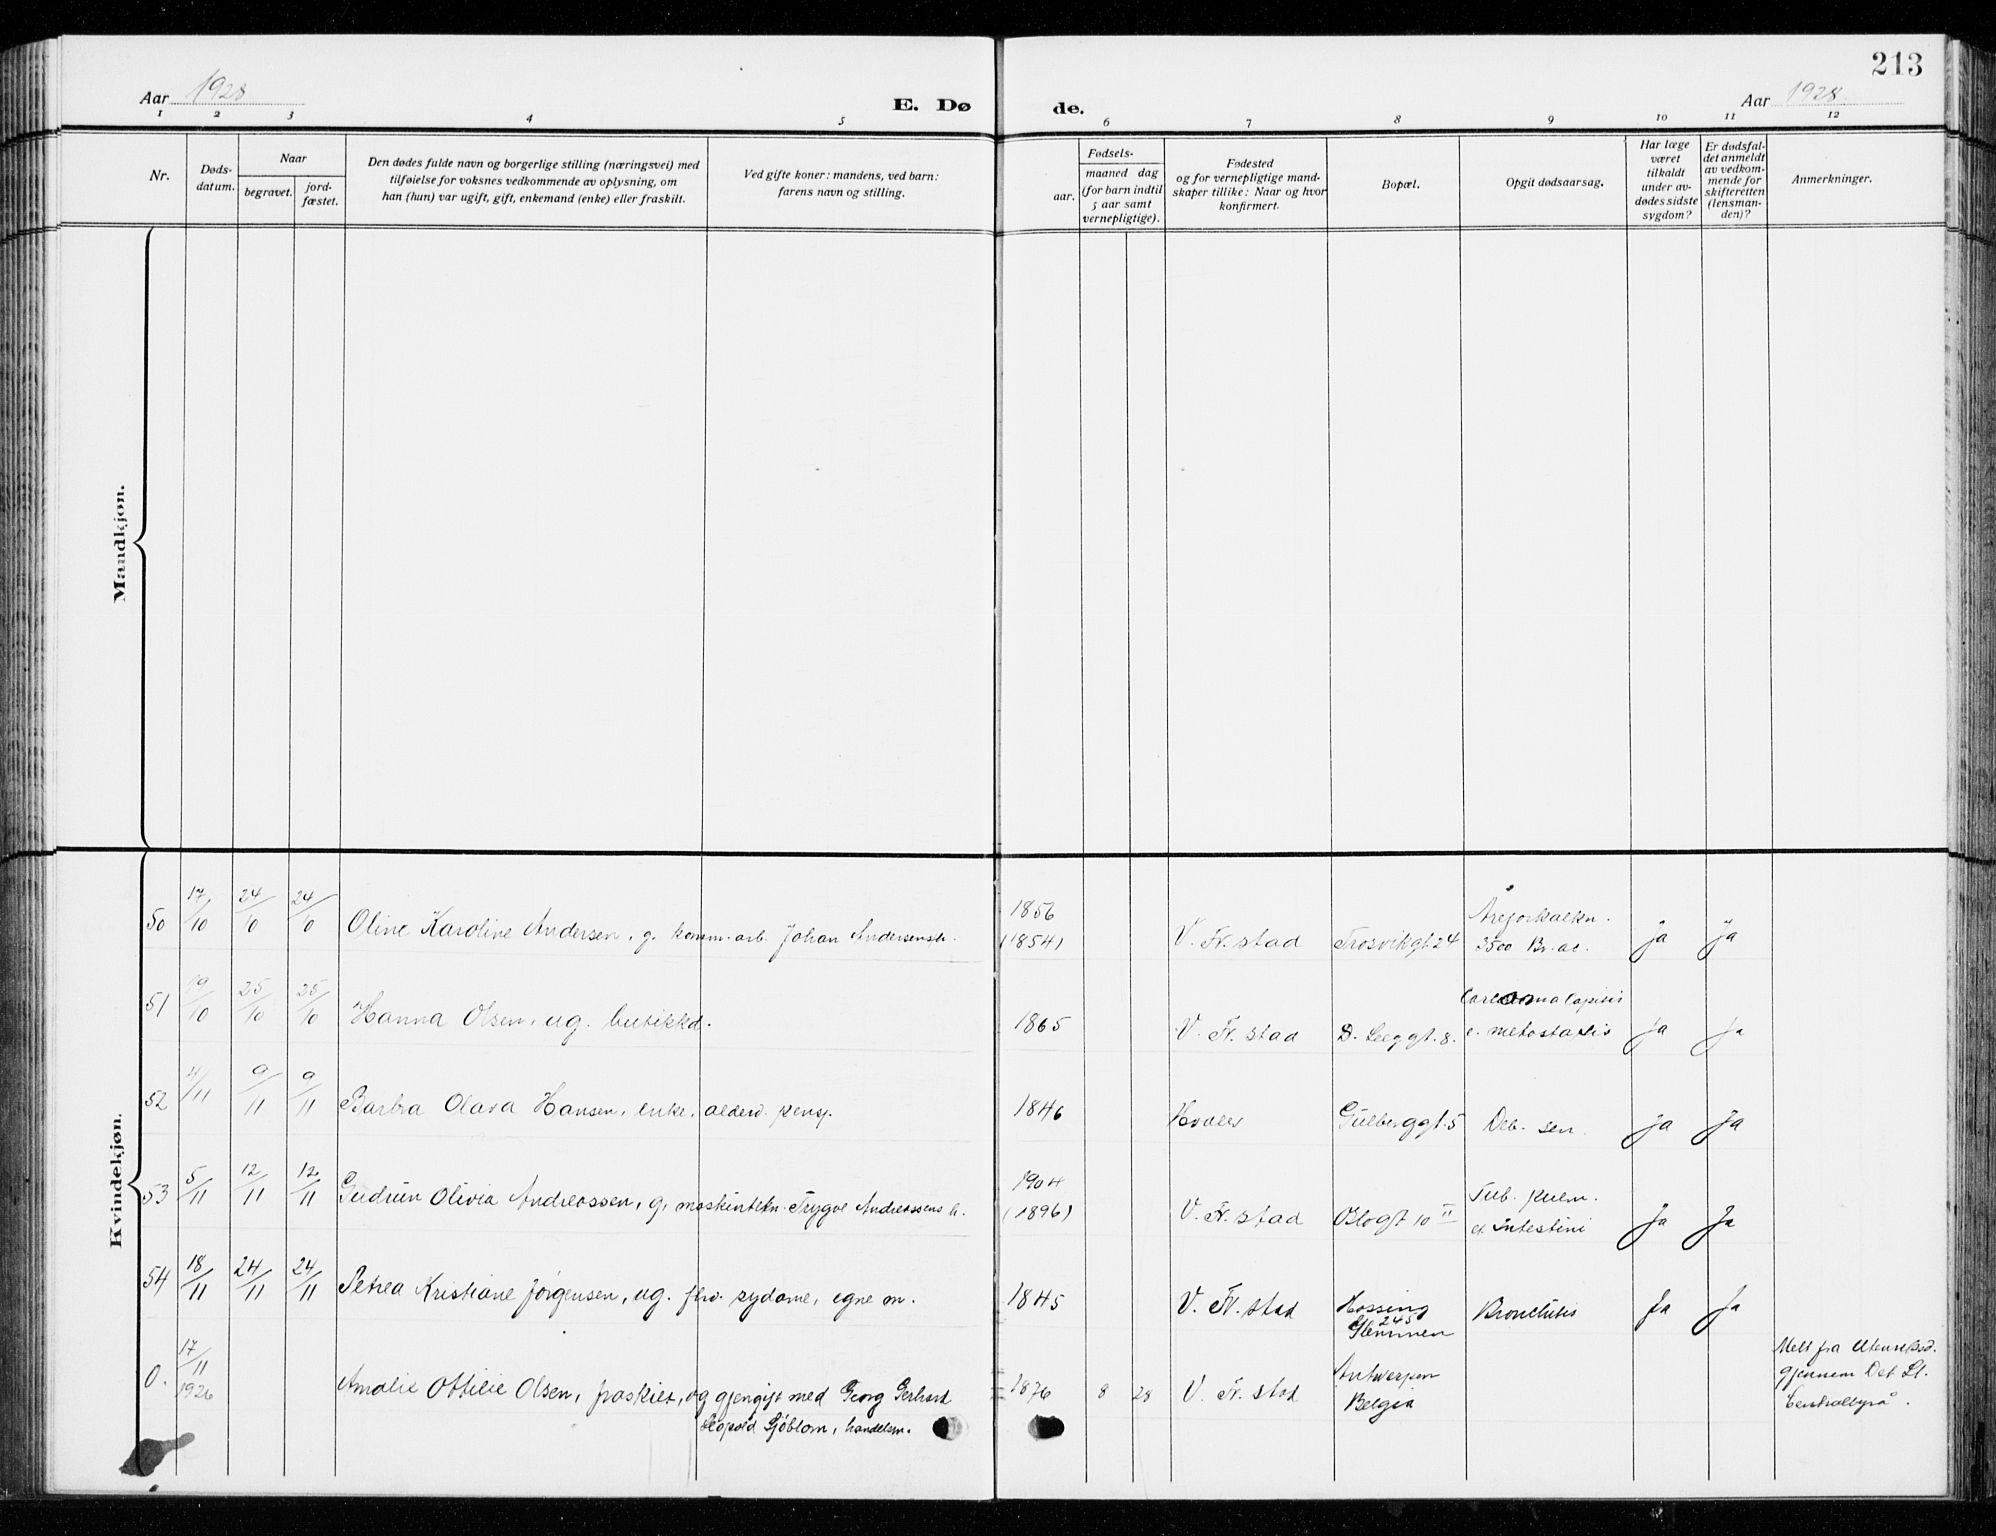 213
Aar 1928
E. Dø
de.
Aar 1928
1 2 3 4 5 6 7 8 9 10 11 12
Nr.
Døds-
datum.
Naar
begravet.
jord-
fæstet.
Den dødes fulde navn og borgerlige stilling (næringsvei) med
tilføielse for voksnes vedkommende av oplysning, om
han (hun) var ugift, gift, enkemand (enke) eller fraskilt.
Ved gifte koner: mandens, ved barn:
farens navn og stilling.
Fødsels-
aar.
maaned dag
(for barn indtil
5 aar samt
vernepligtige).
Fødested
og for vernepligtige mand-
skaper tillike: Naar og hvor
konfirmert.
Bopæl.
Opgit dødsaarsag.
Har læge
været
tilkaldt
under av-
dødes sidste
sygdom?
Er dødsfal-
det anmeldt
av vedkom-
mende for
skifteretten
(lensman-
den)?
Anmerkninger.
Mandkjøn.
Kvindekjøn.
50 17/10 24/10 24/10 Oline Karoline Andersen, g. komm. arb. Johan Andersens h. 1856
(1854) V. Fr.stad Trosvikgt. 24 Åreforkalkn.
3500 Br. ac. ja ja
51 19/10 25/10 25/10 Hanna Olsen, ug. butikkd. 1865 V. Fr.stad D. Leeggt. 8. Carcinoma Capitis
c. metastasis ja ja
52 4/11 9/11 9/11 Barbra Olava Hansen, enke, alderd. pensj. 1846 Hvaler Gulberggt. 5 Deb. sen. ja ja
53 5/11 12/11 12/11 Gudrun Olivia Andreassen, g. maskintekn. Trygve Andreassens h. 1904
(1896) V. Fr.stad Ologt 10 II Tub. pulm.
et intestini Ja Ja
54 18/11 24/11 24/11 Petrea Kristiane Jørgensen, ug. fhv. sydame, egne m. 1845 V. Fr.stad Hassing
245
Glemmen Bronchitis Ja Ja
0. 17/11
1926 Amalie Ottilie Olsen, fraskilt, og gjengift med Georg Gerhard
Leopold Sjöblom, handelsm. 1876 8 28 V. Fr.stad Antwerpen
Belgia
Melt fra Utenriksd.
gjennem Det St.
Centralbyrå.